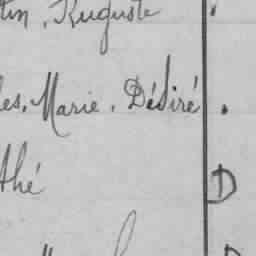 tin, Auguste
les, Marie, Désiré.
thé D